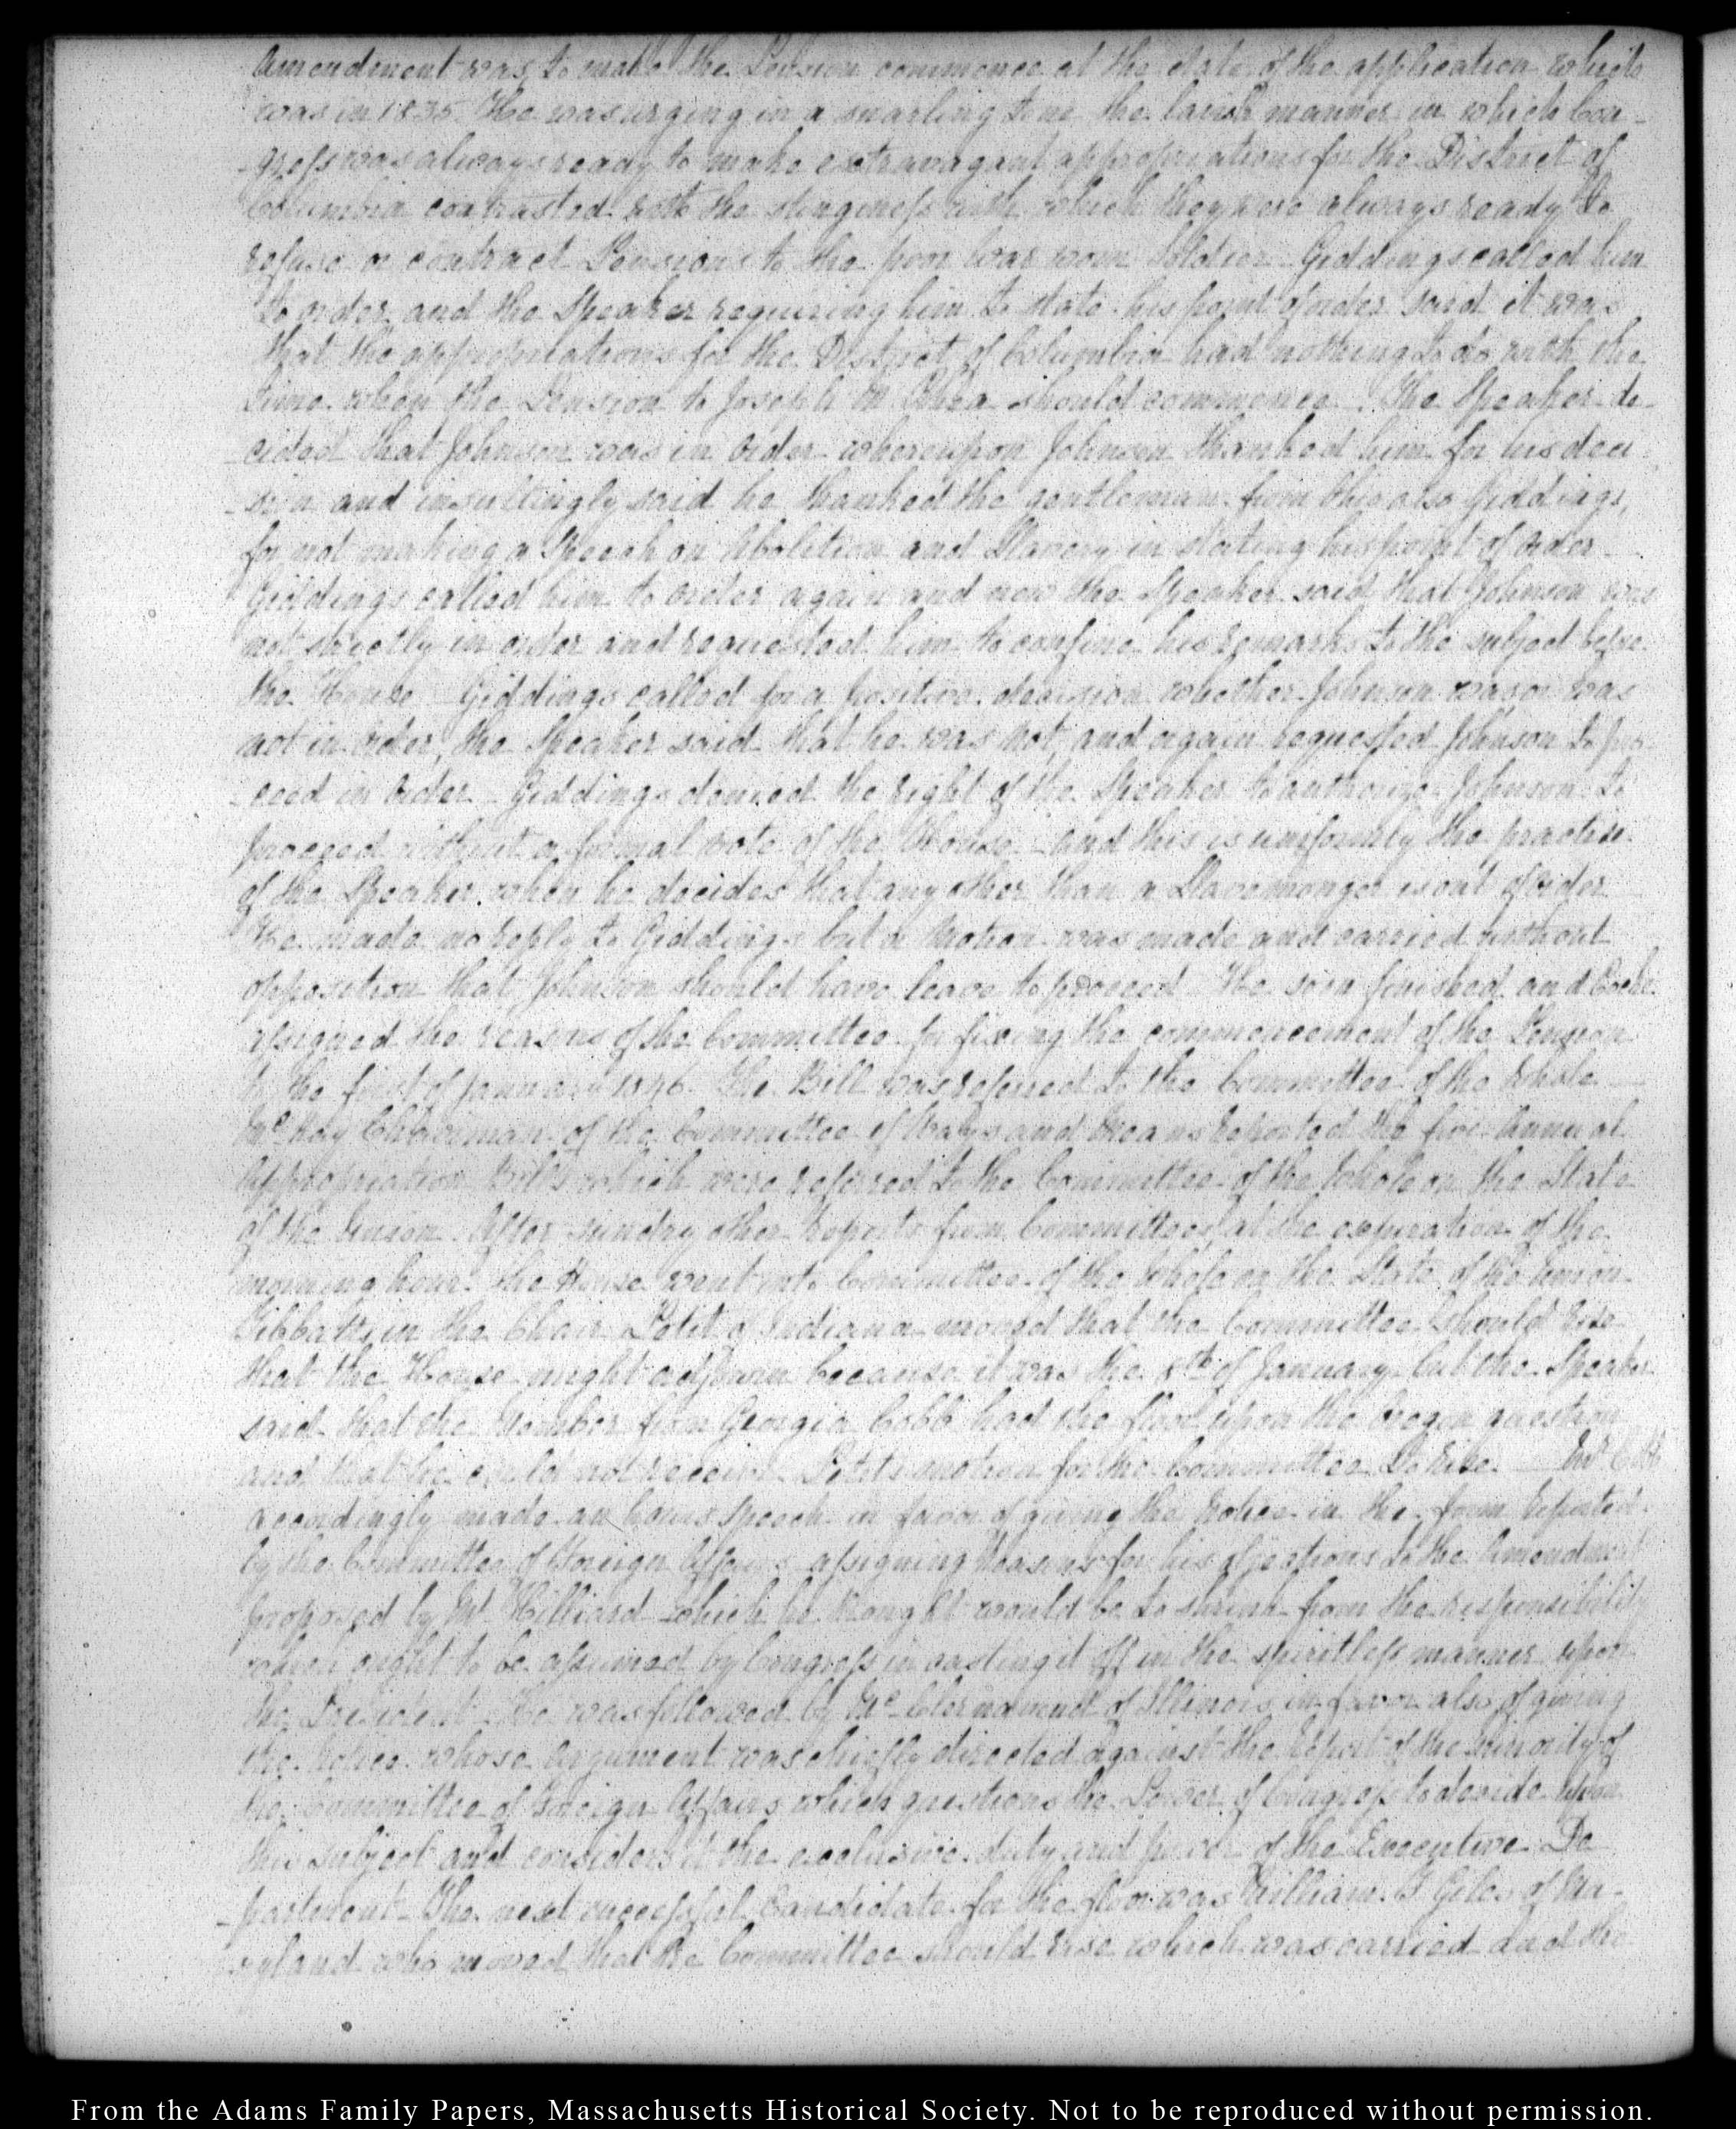 Amendment was, to make the Pension commence at the date of the application which
was in 1835. He was urging in a snarling tone the lavish manner in which Con-
-gress was always ready to make extravagant appropriations for the District of
Columbia contrasted with the stinginess with which they were always ready to
refuse or contract Pensions to the poor war worn Soldier. Giddings called him
to order, and the Speaker requiring him to state his point of order said it was
that the appropriations for the District of Columbia had nothing to do with the
time when the Pension to Joseph M Rhea should commence. The Speaker de-
-cided that Johnson was in order whereupon Johnson thanked him for his deci-
-sion and insultingly said he thanked the gentleman from Ohio also Giddings,
for not making a Speech on Abolition and Slavery in stating his point of order.
Giddings called him to order again and now the Speaker said that Johnson was
not strictly in order and requested him to confine his remarks to the subject before
the House. Giddings called for a positive decision whether Johnson was or was
not in order, the Speaker said that he was not, and again requested Johnson to pro-
-ceed in order. Giddings denied the right of the Speaker to authorize Johnson to
proceed without a formal vote of the House and this is uniformly the practise
of the Speaker when he decides that any other than a Slavemonger is out of order
He made no reply to Giddings but a motion was made and carried without
opposition that Johnson should have leave to proceed. He soon finished and Cocke
assigned the reasons of the Committee for fixing the commencement of the Pension
to the first of January 1846. The Bill was referred to the Committee of the whole
Mc Kay Chairman of the Committee of Ways and Means reported the five Annual
Appropriation Bills which were referred to the Committee of the whole on the State
of the Union. After sundry other reports from Committees, at the expiration of the
morning hour the House went into Committee of the whole on the State of the Union
Tibbatts in the Chair Petit of Indiana moved that the Committee should rise
that the House might adjourn because it was the 8th of January but the Speaker
said that the Member from Georgia Cobb had the floor upon the Oregon question
and that he could not receive Petit's motion for the Committee to rise. Mr Cobb
accordingly made an hours speech in favor of giving the notice in the form reported
by the Committee of Foreign Affairs assigning reasons for his objections to the Amendment
proposed by Mr Hilliard which he thought would be to shrink from the responsibility
which ought to be assumed by Congress in casting it off in the spiritless manner upon
the President. He was followed by Mc Clernamend of Illinois in favor also of giving
the notice whose argument was chiefly directed against the report of the minority of
the Committee of Foreign Affairs which questions the Power of Congress to decide upon
this subject and considers it the exclusive duty and power of the Executive De
-partment. The next successful Candidate for the floor was William F Giles of Ma-
-ryland who moved that the Committee should rise which was carried and the
From the Adams Family Papers, Massachusetts Historical Society. Not to be reproduced without permission.